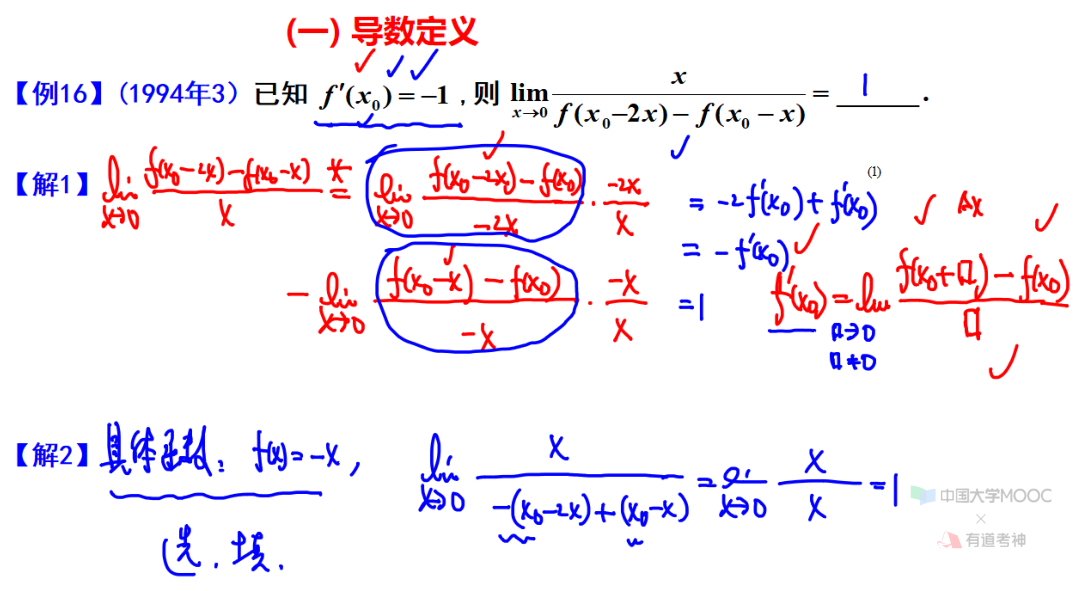 (一) 导数定义
【例16】(1994年3) 已知 f′(x₀) = −1 , 则 lim_{x→0} x / (f(x₀−2x) − f(x₀−x)) = 1 .
【解1】 lim_{x→0} (f(x₀−2x)−f(x₀−x)) / x ≝* lim_{x→0} (f(x₀−2x)−f(x₀)) / (−2x) · (−2x)/x = −2f′(x₀)+f′(x₀) (1) Δx
− lim_{x→0} (f(x₀−x)−f(x₀)) / (−x) · (−x)/x = −f′(x₀)
= 1
f′(x₀) = lim_{□→0, □≠0} (f(x₀+□)−f(x₀)) / □
【解2】 具体函数: f(x)=−x, lim_{x→0} x / (−(x₀−2x)+(x₀−x)) = lim_{x→0} x/x = 1
选. 填.
中国大学MOOC
×
有道考神